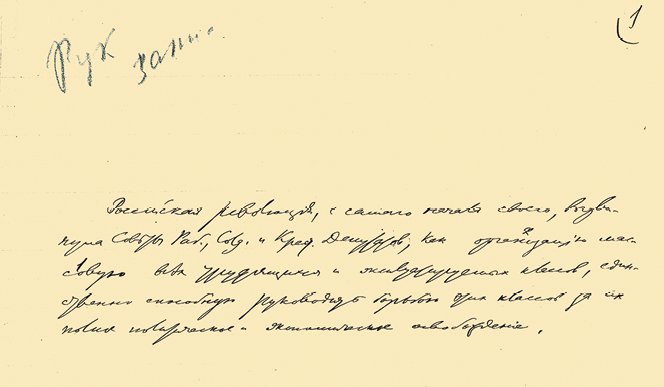 1
Рук
Российская революция, с самого начала своего, выдви-
нула Советы Раб., Солд. и Крест. Депутатов, как организацию мас-
совую всех трудящихся и эксплуатируемых классов, един-
ственно способную руководить борьбою этих классов за их
полное политическое и экономическое освобождение.